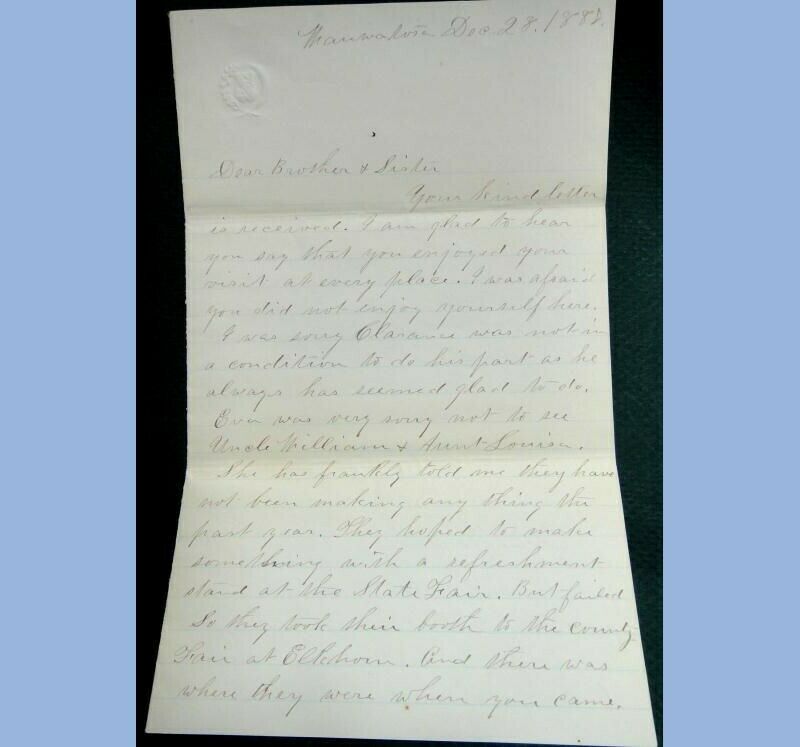 Wauwatosa Dec. 28. 1888.
Dear Brother & Sister
Your kind letter
is received. I am glad to hear
you say that you enjoyed your
visit at every place. I was afraid
you did not enjoy yourself here.
I was sorry Clarance was not in
a condition to do his part as he
always has seemed glad to do.
Eva was very sorry not to see
Uncle William & Aunt Louisa.
She has frankly told me they have
not been making any thing the
past year. They hoped to make
something with a refreshment
stand at the State Fair. But failed
So they took their booth to the county
Fair at Elkhorn. And there was
where they were when you came.